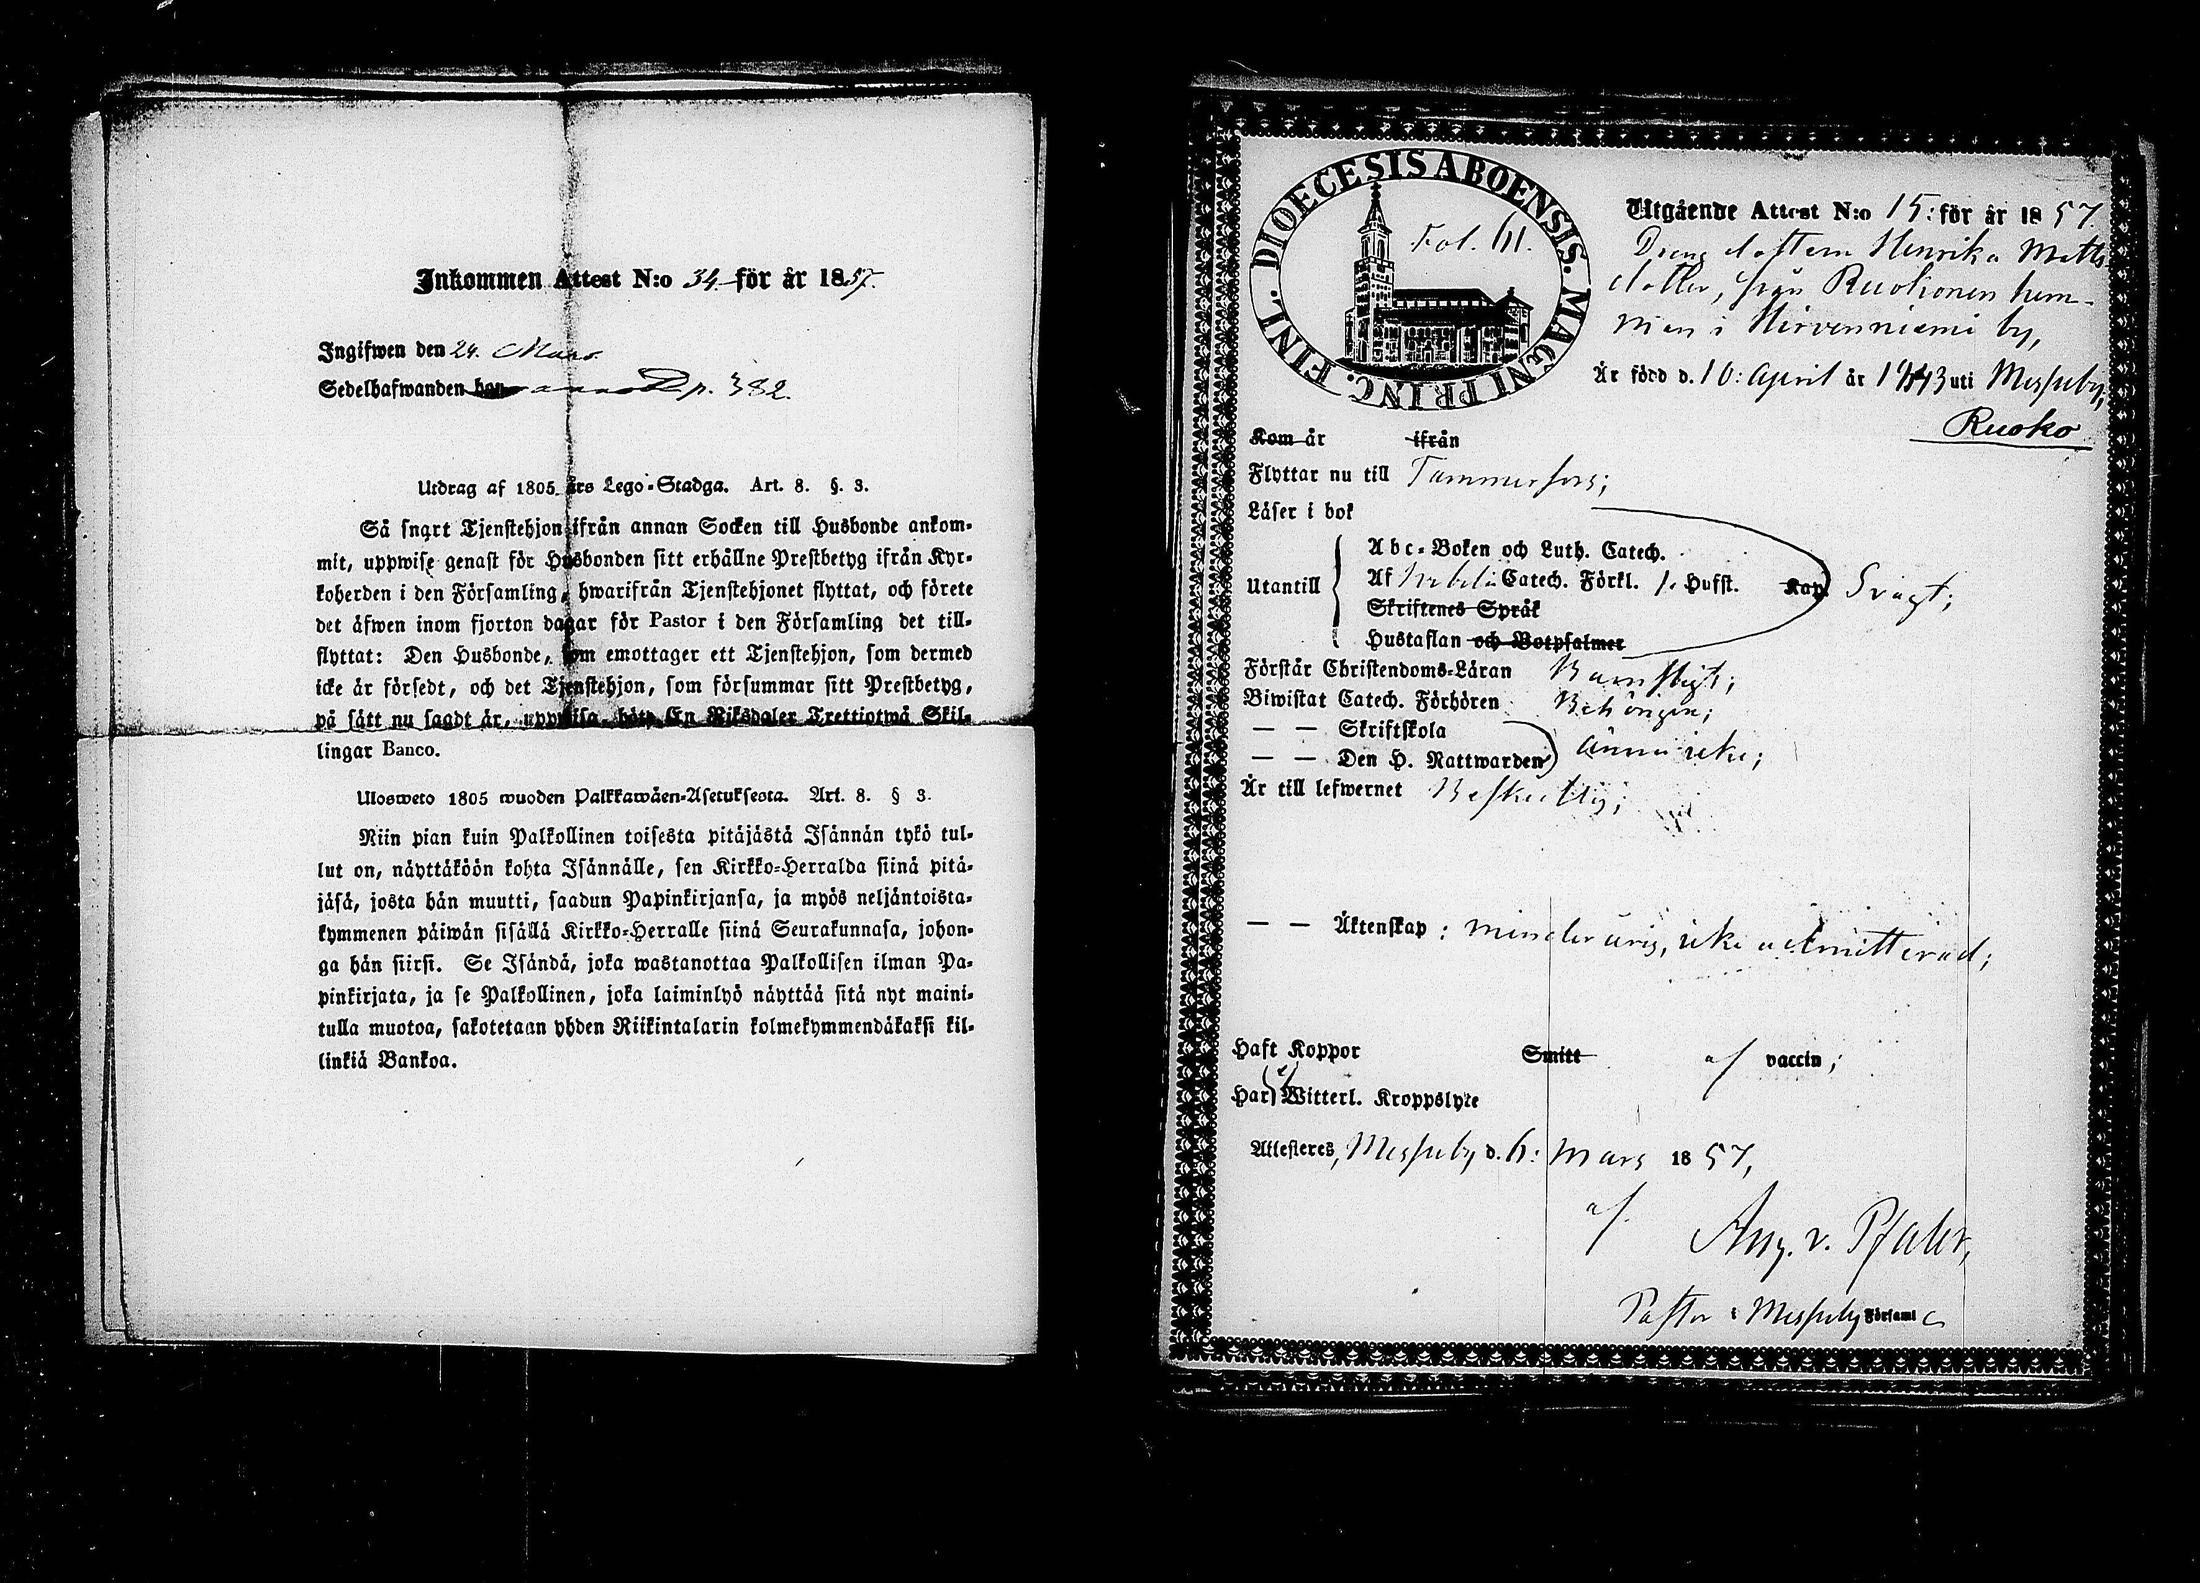 Inkommen Attest N:o 34 för år 1857.
Ingifwen den 24. Mars
Sedelhafwanden har p. 382.
Utdrag af 1805 års Lego-Stadga. Art. 8. §. 3.
Så snart Tjenstehjon ifrån annan Socken till Husbonde ankom-
mit, uppwise genast för Husbonden sitt erhållne Prestbetyg ifrån Kyr-
koherden i den Församling, hwarifrån Tjenstehjonet flyttat, och förete
det äfwen inom fjorton dagar för Pastor i den Församling det till-
flyttat: Den Husbonde, som emottager ett Tjenstehjon, som dermed
icke är försedt, och det Tjenstehjon, som försummar sitt Prestbetyg,
på sätt nu sagdt är, uppwisa, böte En Riksdaler Trettiotwå Skil-
lingar Banco.
Ulosweto 1805 wuoden Palkkawäen-Asetuksesta. Art. 8. § 3.
Niin pian kuin Palkollinen toisesta pitäjästä Isännän tykö tul-
lut on, näyttäköön kohta Isännälle, sen Kirkko-Herralda siinä pitä-
jäsä, josta hän muutti, saadun Papinkirjansa, ja myös neljäntoista-
kymmenen päiwän sisällä Kirkko-Herralle siinä Seurakunnasa, johon-
ga hän siirsi. Se Isändä, joka wastanottaa Palkollisen ilman Pa-
pinkirjata, ja se Palkollinen, joka laiminlyö näyttää sitä nyt maini-
tulla muotoa, sakotetaan yhden Riikintalarin kolmekymmendäkaksi kil-
linkiä Bankoa.
DIOECESIS ABOENSIS. MAGNI PRINC. FINL.
Fol. 61.
Utgående Attest N:o 15: för år 1857.
Dreng dottern Henrika Matts
dotter, från Ruokonen hem-
man i Hirvenniemi by,
Är född d. 10: April år 1843 uti Messuby,
Ruoko
Kom år ifrån
Flyttar nu till Tammerfors;
Läser i bok
Abc-Boken och Luth. Catech.
Utantill Af Catech. Förkl. 1. Hufst. Kap. Svagt;
Skriftenes Språk
Hustaflan och Botpsalmer
Förstår Christendoms-Läran Barnsligt;
Biwistat Catech. Förhören Behörigen;
— — Skriftskola
— — Den H. Nattwarden ännu icke;
Är till lefwernet Beskedlig;
— — Äktenskap: minderårig, icke admitterad;
Haft Koppor Smitt af vaccin;
Har ej Witterl. Kroppslyte
Attesteres, Messuby d. 6: Mars 1857,
af.
Aug. v. Pfaler,
Pastor i Messuby Församl